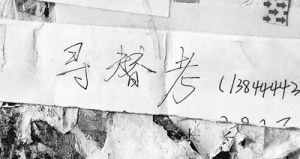 寻替考 (13844443